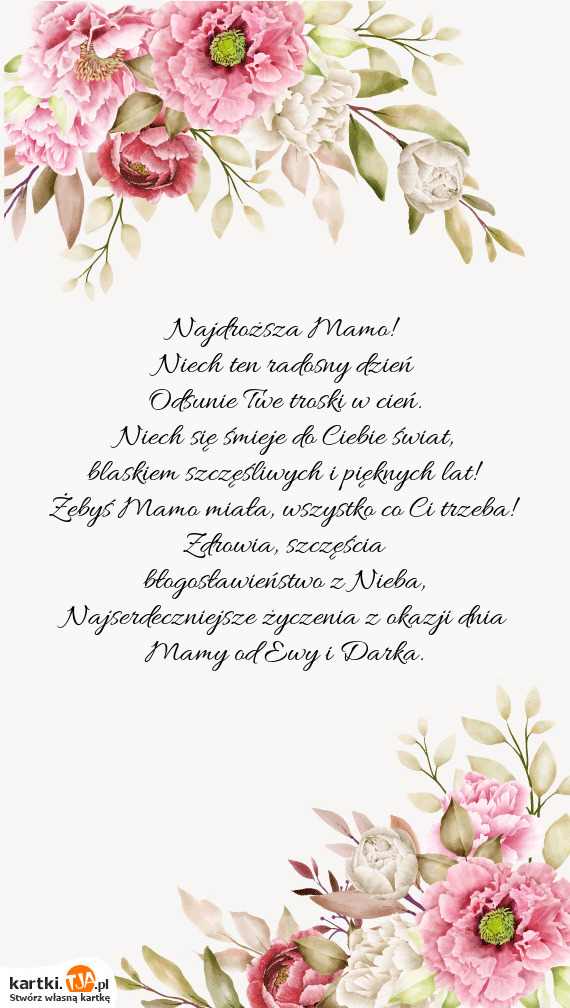 Najdroższa Mamo!
Niech ten radosny dzień
Odsunie Twe troski w cień.
Niech się śmieje do Ciebie świat,
blaskiem szczęśliwych i pięknych lat!
Żebyś Mamo miała, wszystko co Ci trzeba!
Zdrowia, szczęścia
błogosławieństwo z Nieba,
Najserdeczniejsze życzenia z okazji dnia
Mamy od Ewy i Darka.
kartki.TJA.pl
Stwórz własną kartkę